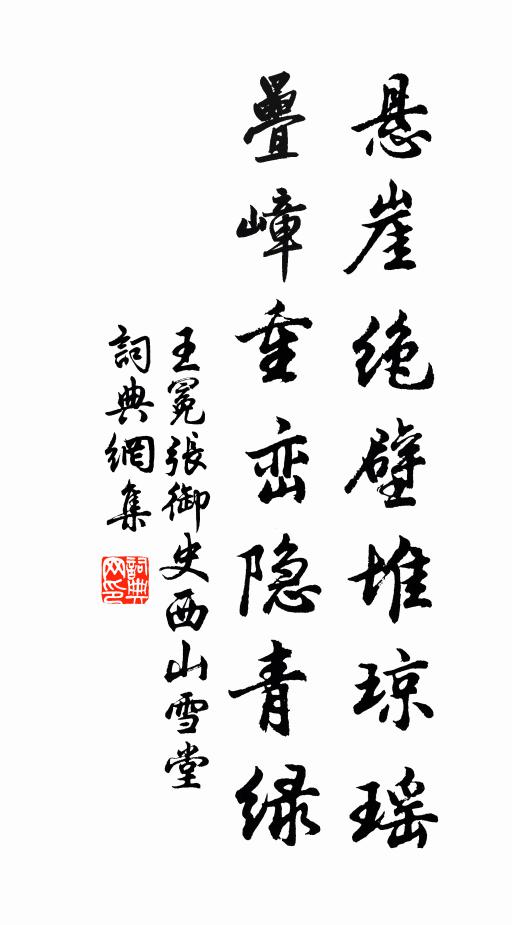 悬崖绝壁堆琼瑶
疊嶂重峦隐青绿
王冕張御史西山雪堂
詞典網集
詞典网印